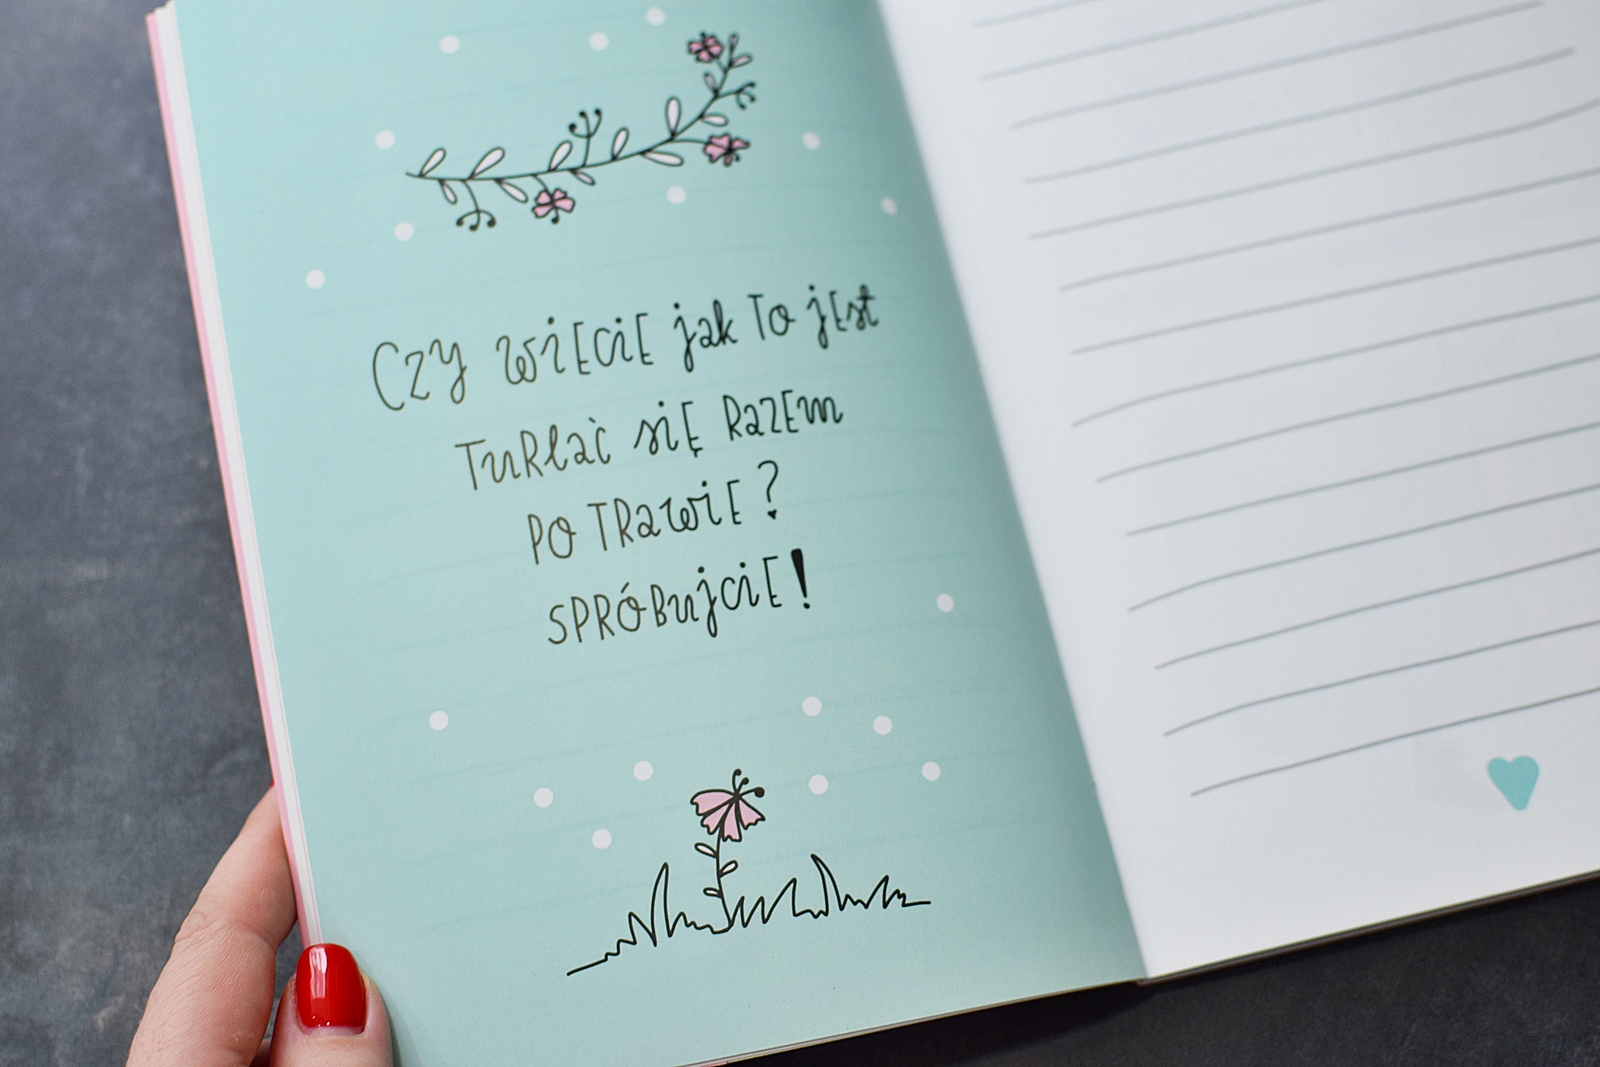 Czy wiecie jak to jest
turlać się razem
po trawie?
Spróbujcie!